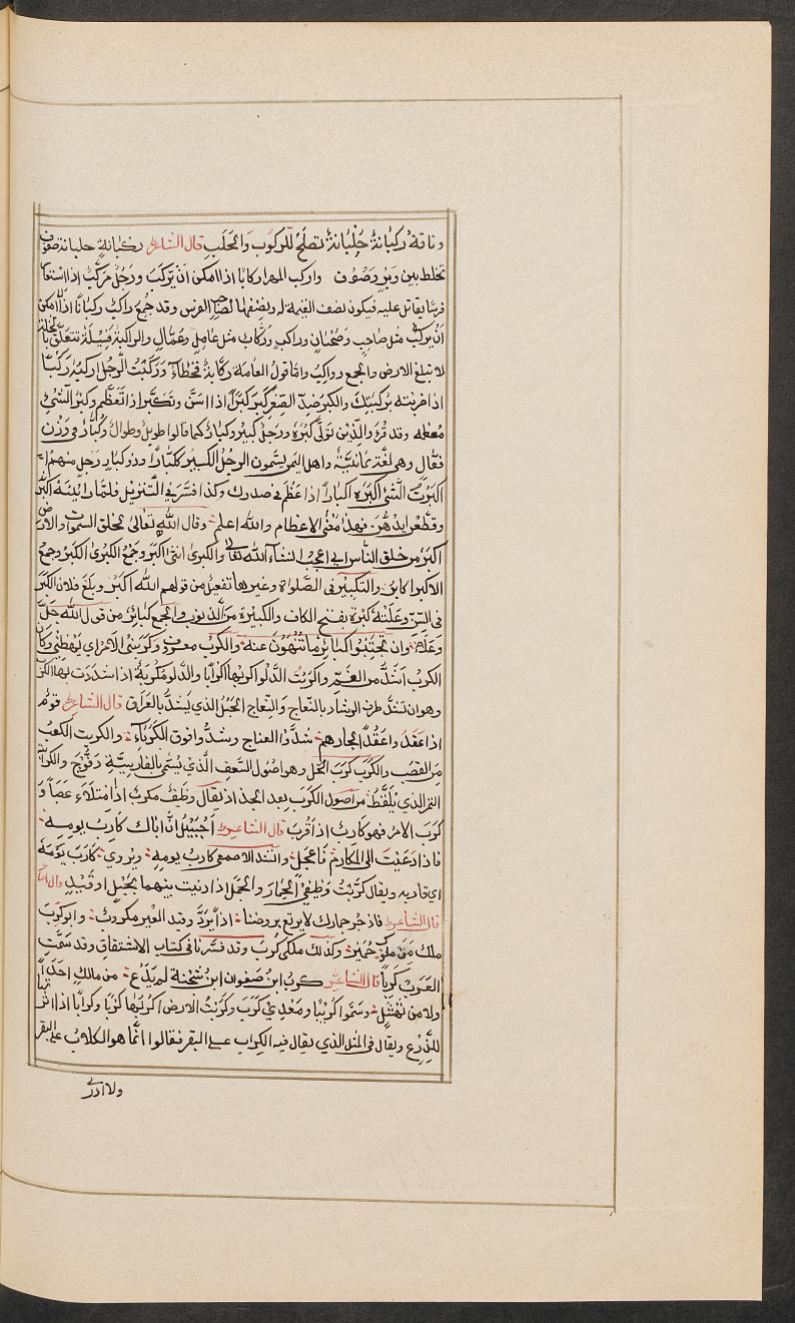 وناقة رُكبانة حُلبانة تصلح للركوب والحلب قال الشاعر ركبانة حلبانة صفوف
تخلط بين وبر وصوف واركب المهر اركابا اذا امكن ان يركب ورجل مركب اذا استعار
فرسا يقاتل عليه فيكون نصف الغنيمة له ونصفها لصاحب الفرس وقد جمع راكب ركبانا اذا امكن
ان يركب مثل صاحب وصحبان وراكب وركاب مثل عامل وعمال والراكبة فسيلة تتعلق بالنخلة
لا تبلغ الارض والجمع رواكب واما قول العامة ركابة فخطاء وركبت الرجل اركبه ركبا
اذا ضربته بركبتيك والكبر ضد الصغر كبر كبرا اذا اسن وتكبر اذا تعظم وكبر الشئ
معظمه وقد قرء والذين تولى كبره ورجل كبير وكبار كما قالوا طويل وطوال وكبار فى وزن
فعال وهو لغة يمانية واهل اليمن يسمون الرجل الكبير كبارا وذو كبار رجل منهم
اكبرت الشئ اكبره اكبارا اذا عظم فى صدرك وكذا فسر فى التنزيل فلما راينه اكبرنه
وقطعن ايديهن فهذا معنى الاعظام والله اعلم وقال الله تعالى لخلق السموات والارض
اكبر من خلق الناس اى اعجب الثناء الله تعالى والكبرى انثى اكبر وجمع الكبرى الكبر وجمع
الاكبر اكابر والتكبير فى الصلوة وغيرها تفعيل من قولهم الله اكبر وبلغ فلان الكبر
فى السن وعلته كبرة بفتح الكاف والكبيرة من الذنوب والجمع كبائر من قول الله جل
وعلا وان تجتنبوا كبائر ما تنهون عنه والكرب معروف وكربنى الامر اى بهظنى وكان
الكرب اشد من الغم واكربت الدلو اكربها اكرابا والدلو مكربة اذا شددت بها الكرب
وهو ان تشد طرف الرشاء بالعناج والعناج الحبل الذى يشد بالعراق قال الشاعر قوم
اذا عقدوا عقدا لجارهم شدوا العناج وشدوا فوقه الكربا والكرب الكعب
من القصب والكرب كرب النخل وهو اصول السعف الذى يسمى بالفارسية والكرابة
التمر الذى يلتقط من اصول الكرب بعد الجذاذ يقال وظيف مكرب اذا امتلاء عصبا و
كرب الامر فهو كارب اذا قرب قال الشاعر اجبيل ان اباك كارب يومه
فاذا دعيت الى المكارم فاعجل وانشد الاصمعى كارب يومه ويروى كارب يومه
اى قاربه ويقال كربت وظيفى الحمار والجمل اذا دنيت بينهما بحبل او قيد
قال الشاعر فازجر حمارك لا يرتع بروضنا اذا يرد وقيد العير مكروب وابو كرب
ملك من ملوك حمير وكذلك ملكى كرب وقد فسرنا فى كتاب الاشتقاق وقد سمت
العرب كربا قال الشاعر كرب ابن صفوان ابن شجنة لم يدع من مالك احدا
ولا من نهشل وسموا كريبا ومعدى كرب وكربت الارض اكربها كربا وكرابا اذا اثرتها
للزرع ويقال فى المثل الذى يقال فيه الكراب على البقر فقالوا انما هو الكلاب على البقر
ولا ادرى